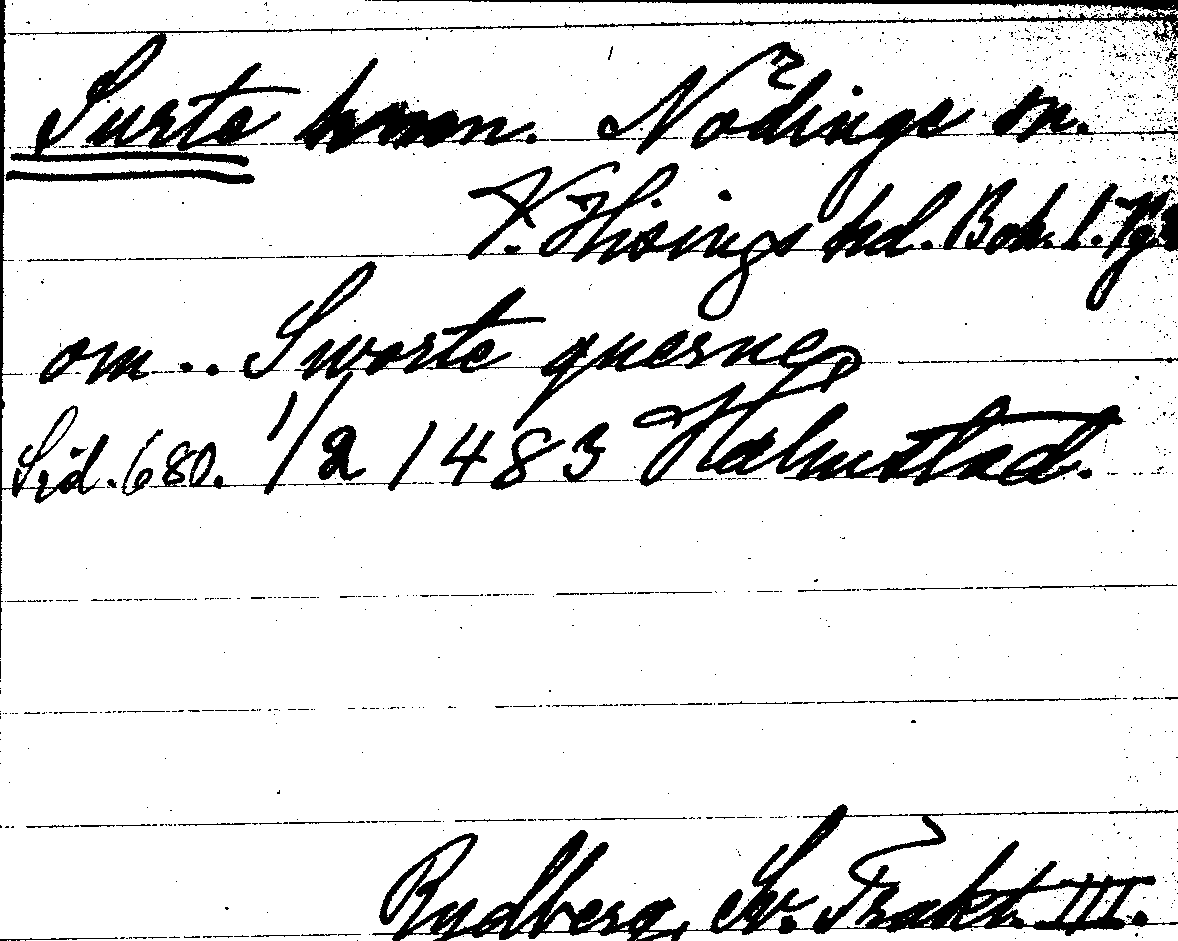 Surte hmn. Nödinge sn.
V. Hisings hd. Boh. l.
om .. Sworte querne,
Sid. 680. 1/2 1483 Halmstad.
Rydberg, Sv. Trakt. III.